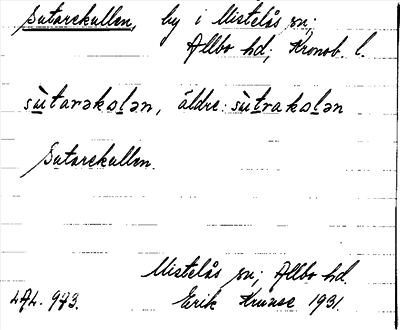 Sutarekullen, by i Mistelås sn;
Allbo hd; Kronob. l.
sùtarəkoLən, äldre: sùtrakoLən
Sutarekullen.
Mistelås sn; Allbo hd.
LAL. 973. Erik Kruuse 1931.